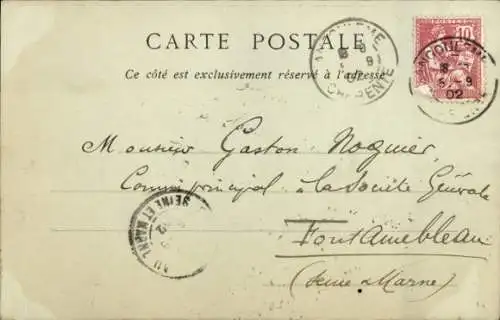 CARTE POSTALE
Ce côté est exclusivement réservé à l'adresse
POSTES
10
ANGOULEME
8
9
02
CHARENTE
ANGOULEME
8
8 - 9
02
Monsieur Gaston Noguier
Commis principal à la Société Générale
Fontainebleau
(Seine & Marne)
SEINE ET MARNE